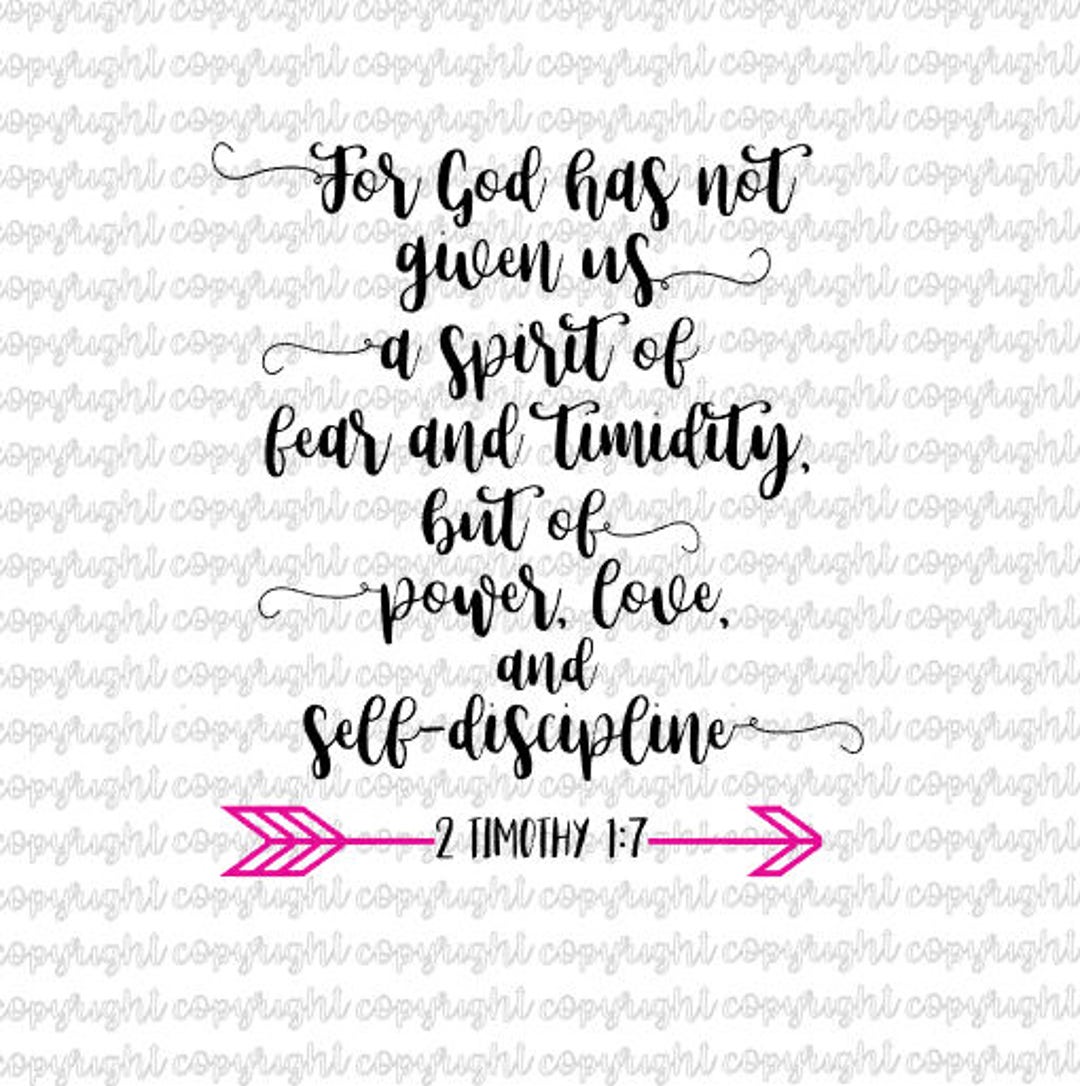 For God has not
given us
a spirit of
fear and timidity,
but of
power, love,
and
self-discipline
2 TIMOTHY 1:7
copyright copyright copyright copyright copyright copyright